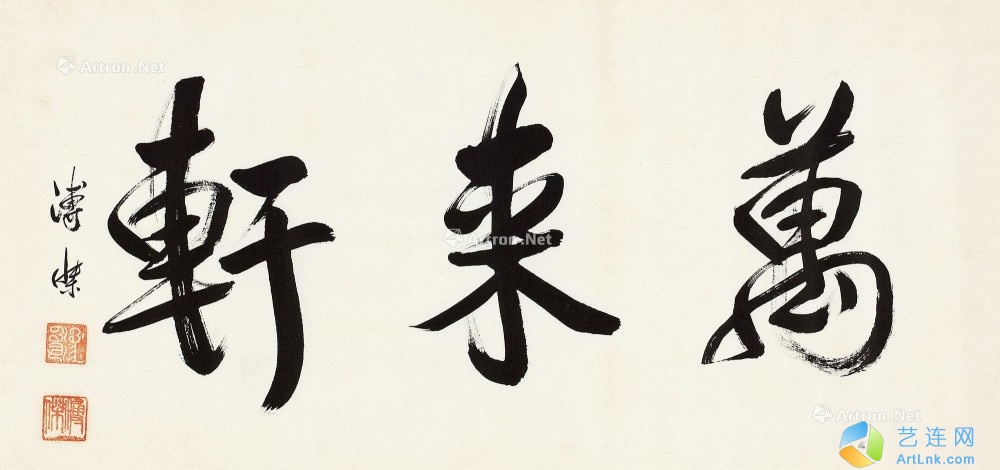 萬来軒
溥傑
溥傑
Artron.Net
Artron.Net
Artron.Net
艺连网
ArtLnk.com